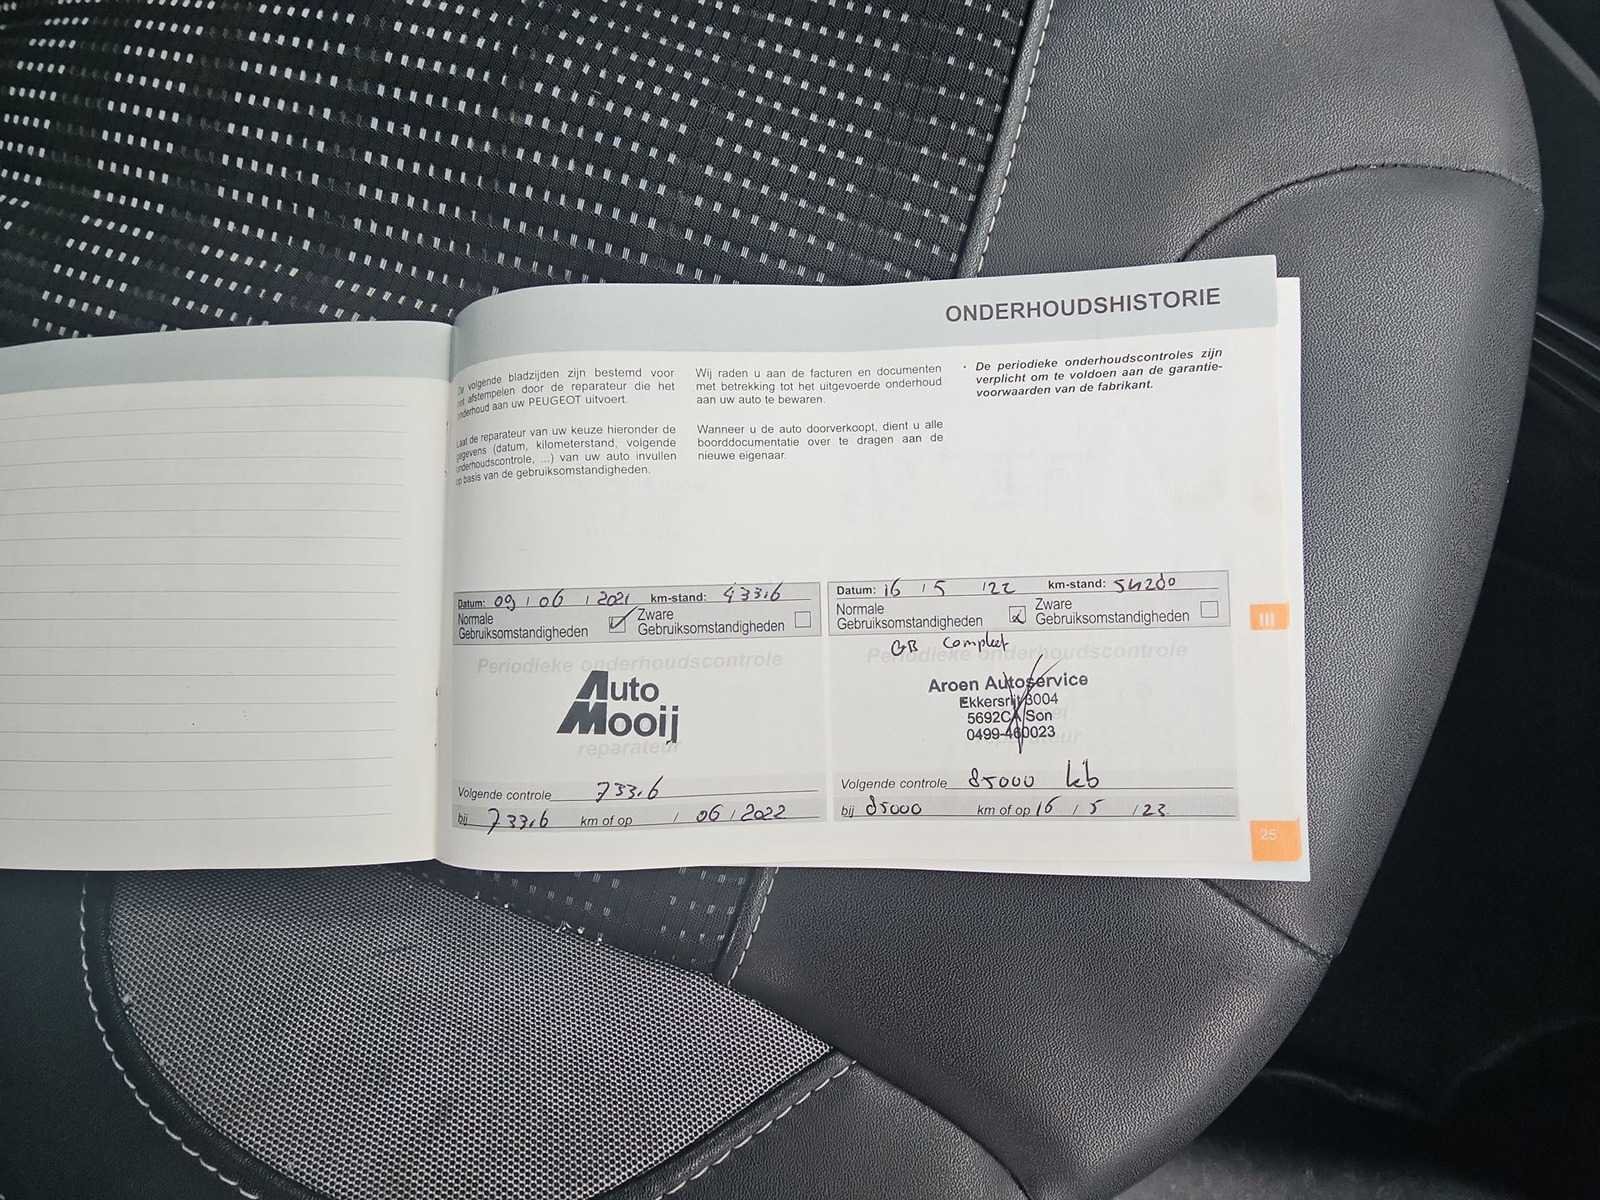 ONDERHOUDSHISTORIE
De volgende bladzijden zijn bestemd voor
het afstempelen door de reparateur die het
onderhoud aan uw PEUGEOT uitvoert.
Laat de reparateur van uw keuze hieronder de
gegevens (datum, kilometerstand, volgende
onderhoudscontrole, ...) van uw auto invullen
op basis van de gebruiksomstandigheden.
Wij raden u aan de facturen en documenten
met betrekking tot het uitgevoerde onderhoud
aan uw auto te bewaren.
Wanneer u de auto doorverkoopt, dient u alle
boorddocumentatie over te dragen aan de
nieuwe eigenaar.
· De periodieke onderhoudscontroles zijn
verplicht om te voldoen aan de garantie-
voorwaarden van de fabrikant.
Datum: 09 / 06 / 2021 km-stand: 43316
Normale
Gebruiksomstandigheden
Zware
Gebruiksomstandigheden
Periodieke onderhoudscontrole
Auto
Mooij
reparateur
Volgende controle 73316
bij 73316 km of op / 06 / 2022
Datum: 16 / 5 / 22 km-stand: 54280
Normale
Gebruiksomstandigheden
Zware
Gebruiksomstandigheden
GB Compleet
Periodieke onderhoudscontrole
Aroen Autoservice
Ekkersrijt 3004
5692CA Son
0499-460023
Volgende controle 85000 kb
bij 85000 km of op 16 / 5 / 23
III
25